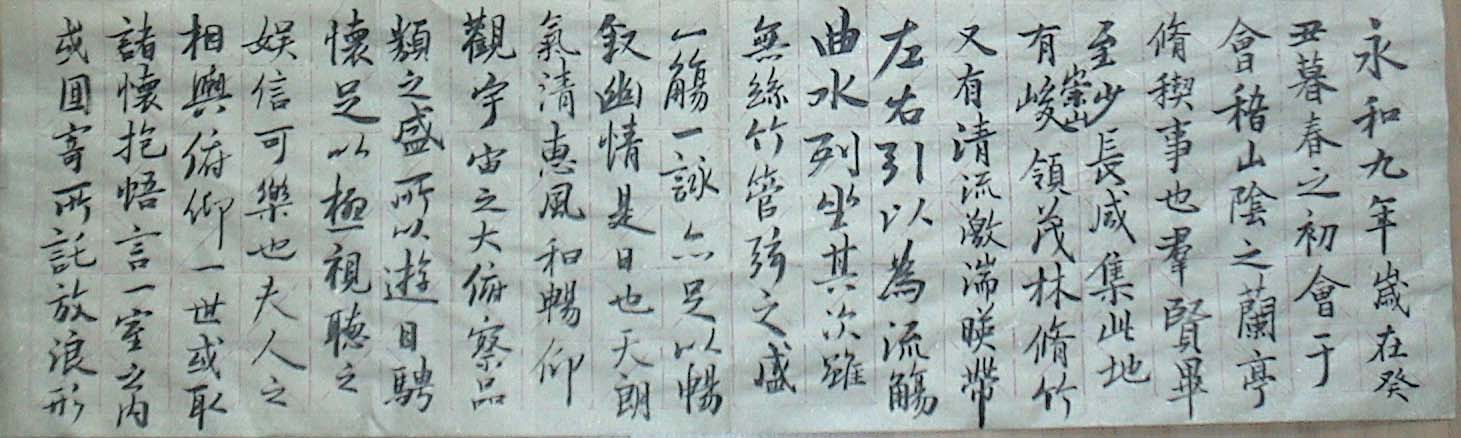 永和九年歲在癸
丑暮春之初會于
會稽山陰之蘭亭
脩稧事也羣賢畢
至少長咸集此地
有崇山峻領茂林脩竹
又有清流激湍暎帶
左右引以為流觴
曲水列坐其次雖
無絲竹管弦之盛
一觴一詠亦足以暢
敘幽情是日也天朗
氣清惠風和暢仰
觀宇宙之大俯察品
類之盛所以遊目騁
懷足以極視聽之
娛信可樂也夫人之
相與俯仰一世或取
諸懷抱悟言一室之內
或因寄所託放浪形